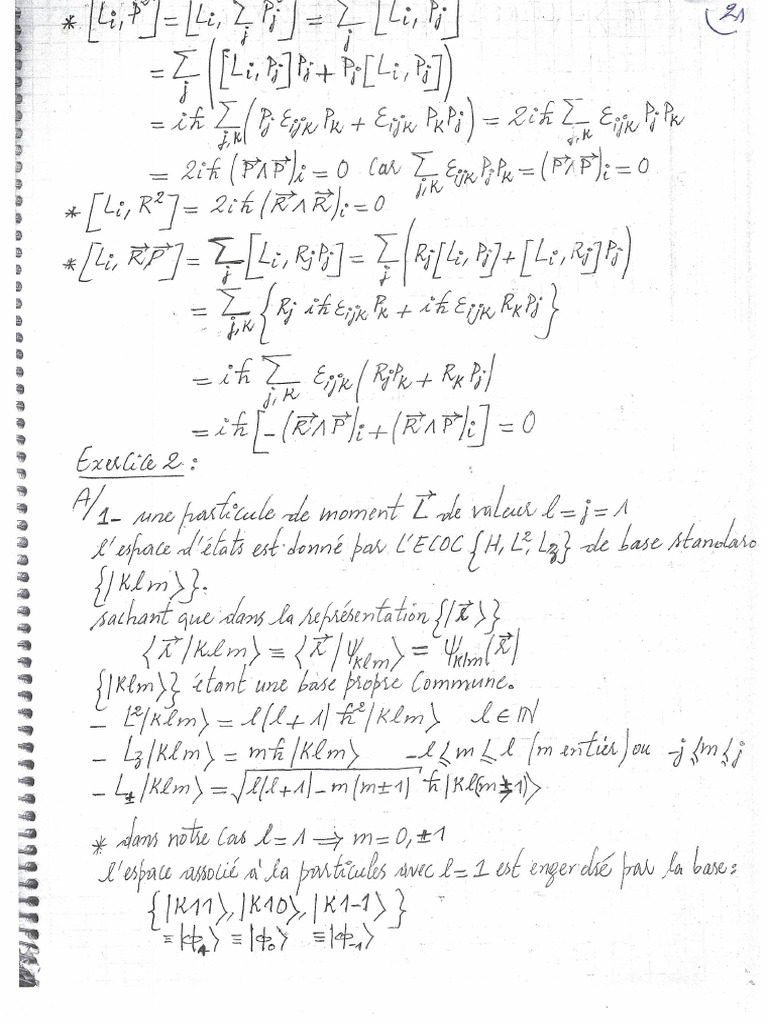 21
* [Li, P²] = [Li, Σ_j Pj²] = Σ_j [Li, Pj²]
= Σ_j ([Li, Pj]Pj + Pj[Li, Pj])
= iħ Σ_{j,k} (Pj εijk Pk + εijk Pk Pj) = 2iħ Σ_{j,k} εijk Pj Pk
= 2iħ (P⃗∧P⃗)i = 0 car Σ_{j,k} εijk Pj Pk = (P⃗∧P⃗)i = 0
* [Li, R²] = 2iħ (R⃗∧R⃗)i = 0
* [Li, R⃗P⃗] = Σ_j [Li, RjPj] = Σ_j (Rj[Li, Pj] + [Li, Rj]Pj)
= Σ_{j,k} {Rj iħ εijk Pk + iħ εijk Rk Pj}
= iħ Σ_{j,k} εijk (RjPk + RkPj)
= iħ [-(R⃗∧P⃗)i + (R⃗∧P⃗)i] = 0
Exercice 2 :
A/ 1- une particule de moment L⃗ de valeur l = j = 1
l'espace d'états est donné par L'ECOC {H, L², Lz} de base standard
{|Klm⟩}.
sachant que dans la représentation {|r⃗⟩}
⟨r⃗|Klm⟩ ≡ ⟨r⃗|ψKlm⟩ = ψKlm(r⃗)
{|Klm⟩} étant une base propre Commune.
- L²|Klm⟩ = l(l+1)ħ²|Klm⟩ l ∈ ℕ
- Lz|Klm⟩ = mħ|Klm⟩ -l ⩽ m ⩽ l (m entier) ou -j ⩽ m ⩽ j
- L±|Klm⟩ = √(l(l+1) - m(m±1)) ħ|Kl(m±1)⟩
* dans notre cas l = 1 ⟹ m = 0, ±1
l'espace associé à la particules avec l = 1 est engendré par la base :
{|K11⟩, |K10⟩, |K1-1⟩}
≡|ϕ1⟩ ≡|ϕ0⟩ ≡|ϕ-1⟩